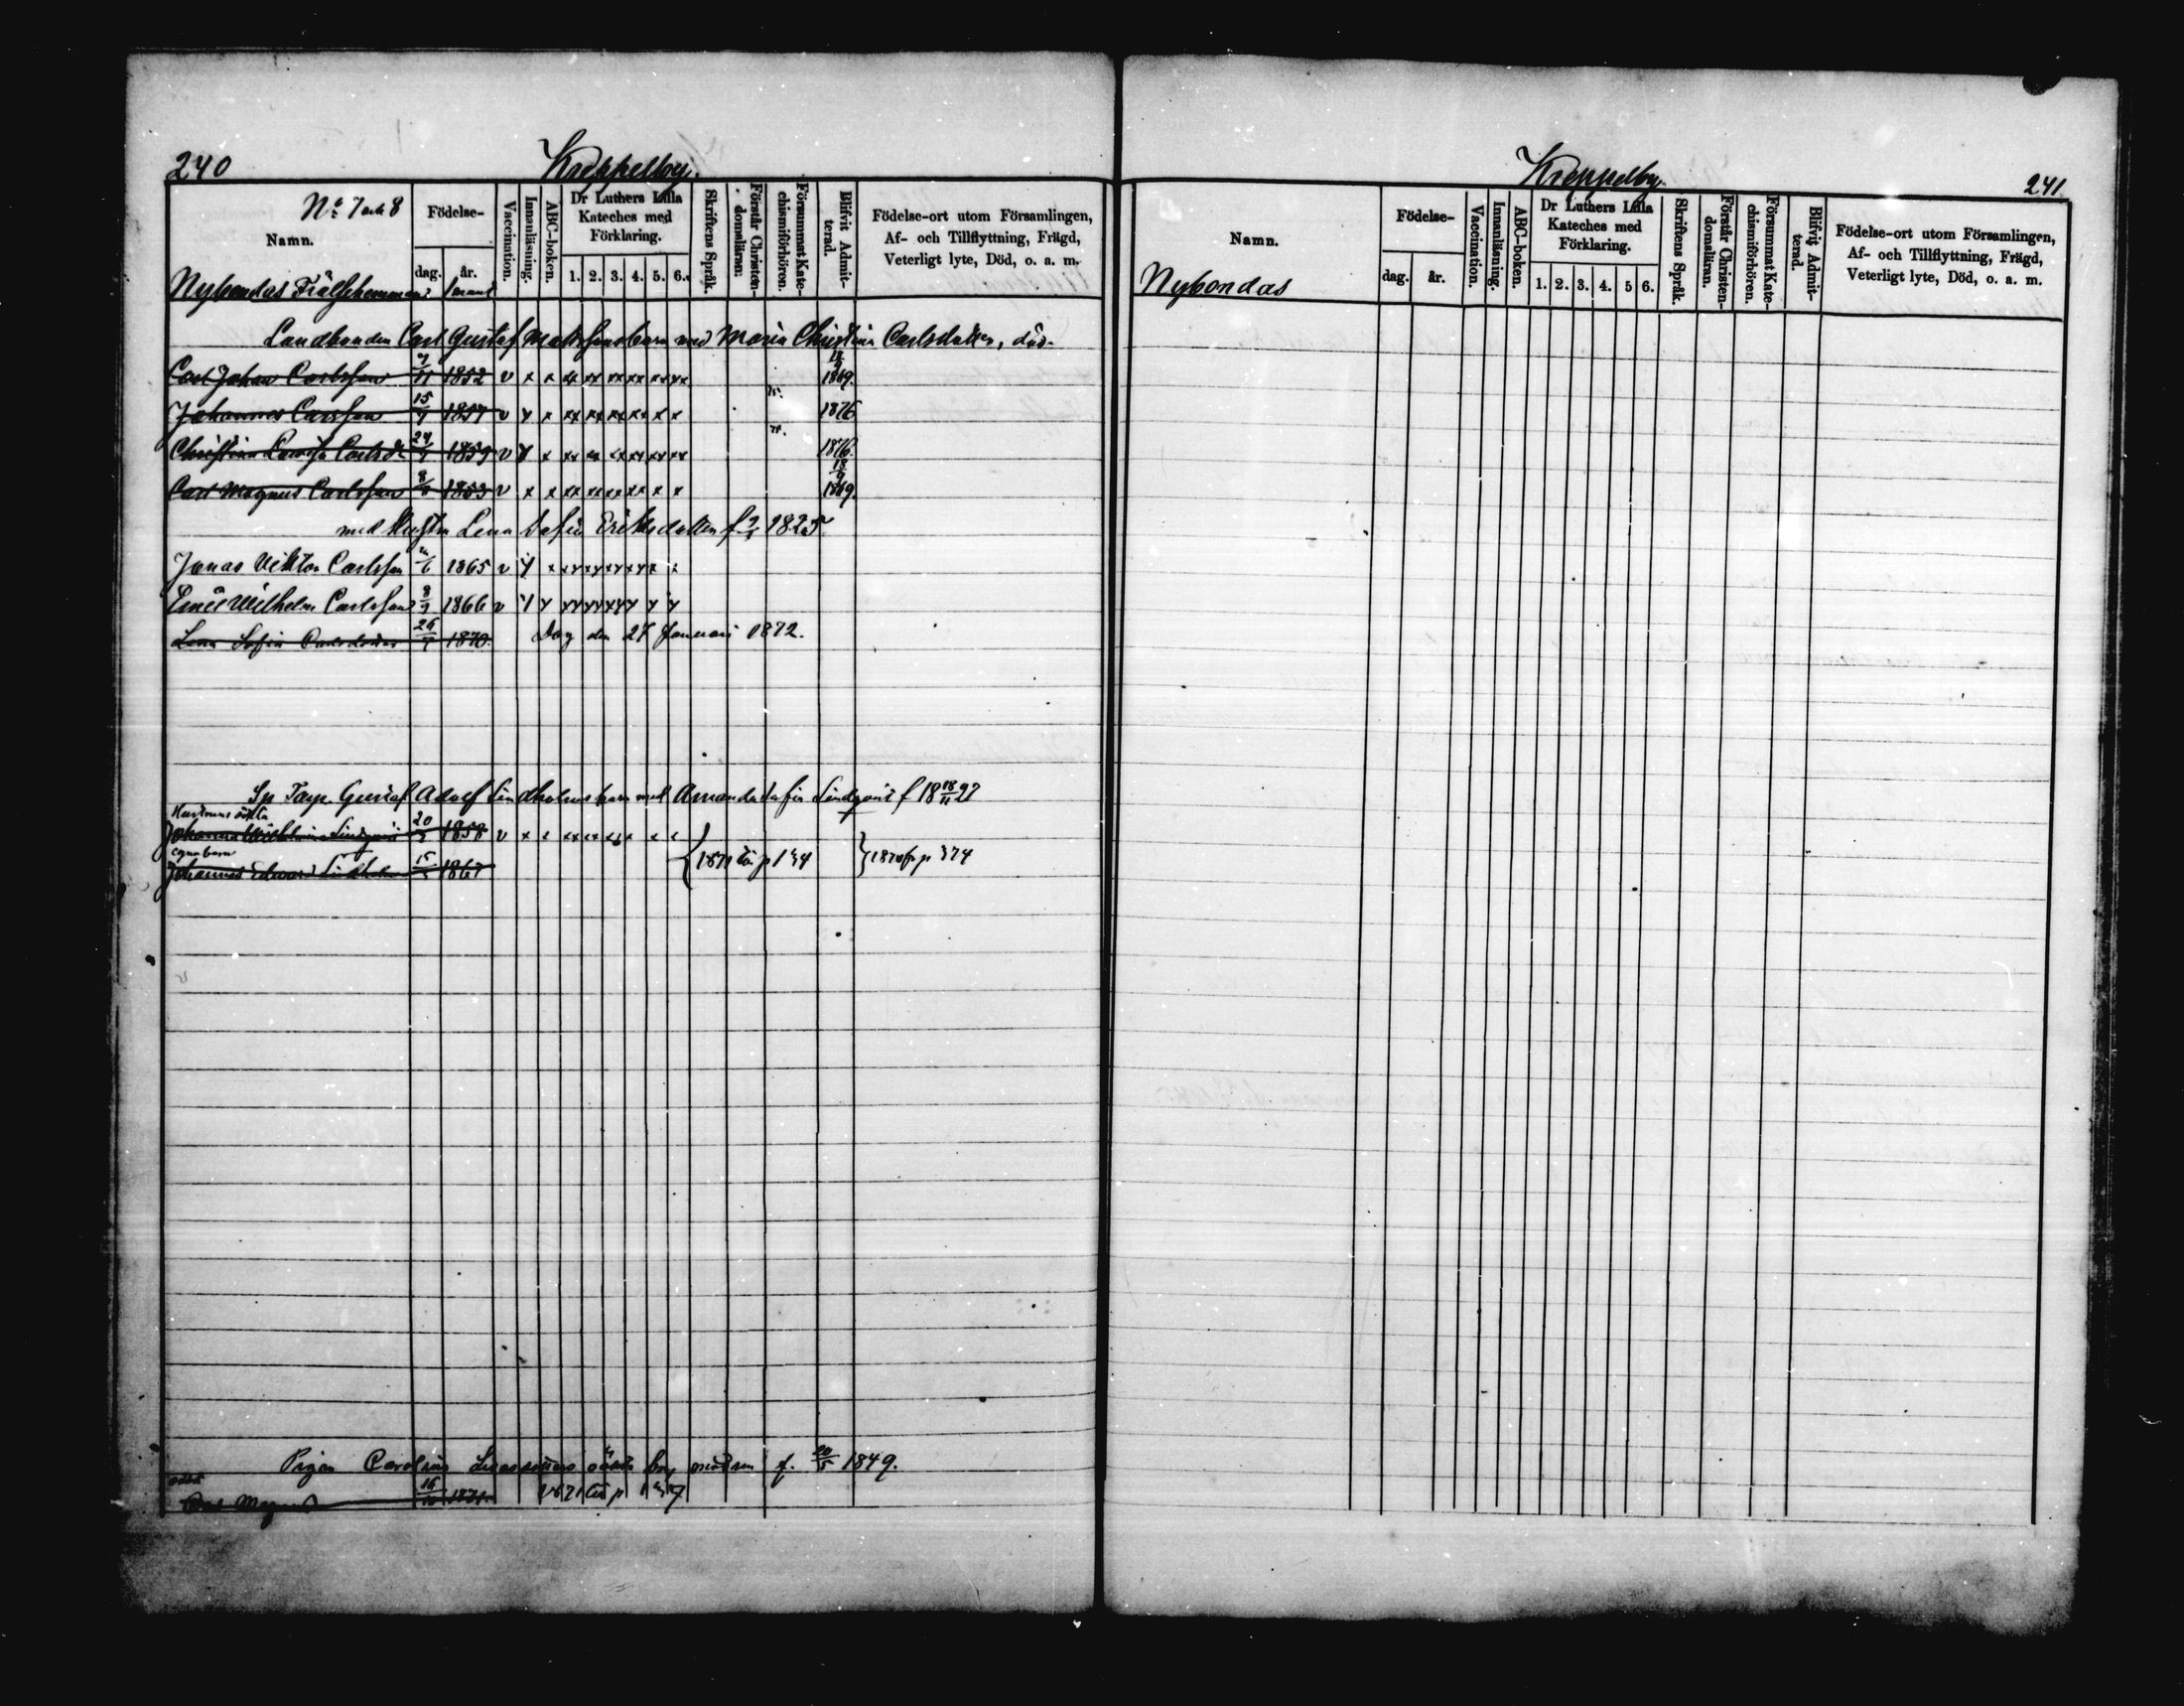 240
Kreppelby.
Nº 7 och 8
Namn.
Födelse-
dag.
år.
Vaccination.
Innanläsning.
ABC-boken.
Dr Luthers Lilla Kateches med Förklaring.
1. 2. 3. 4. 5. 6.
Skriftens Språk.
Förstår Christendomsläran.
Försummat Katechismiförhören.
Blifvit Admitterad.
Födelse-ort utom Församlingen,
Af- och Tillflyttning, Frägd,
Veterligt lyte, Död, o. a. m.
Nybondas Frälsehemman
Landbonden Carl Gustaf Mattssons barn med Maria Christina Carlsdotter, död.
Carl Johan Carlsson 1852 v x x 1869.
Johannes Carlsson 15/9 1857 v 1876
Christina Lovisa Carlsdr 1859 v 1876.
Carl Magnus Carlsson 1853 v x x 1869.
med Hustrun Lena Sofia Eriksdotter f. 1825.
Jonas Viktor Carlsson 1865 v
Emil Wilhelm Carlsson 8/9 1866 v
Lena Sofia Carlsdotter 26 1870. Dog den 27 Januari 1872.
Gustaf Adolf Lindholms barn med Amanda Sofia Lindqvist f 18 18/11 27
Hustruns oäkta
Johanna Wilhelmina Lindqvist 20 1858 v x x
egna barn
Johannes Edvard Lindholm 15 1867
1871 till p 174
1870 fr p 374
Pigan Carolina oäkta med f. 20/5 1849.
Carl Magnus 16/10 1871.
Kreppelby.
241.
Namn.
Födelse-
dag.
år.
Vaccination.
Innanläsning.
ABC-boken.
Dr Luthers Lilla Kateches med Förklaring.
1. 2. 3. 4. 5 6.
Skriftens Språk.
Förstår Christendomsläran.
Försummat Katechismiförhören.
Blifvit Admitterad.
Födelse-ort utom Församlingen,
Af- och Tillflyttning, Frägd,
Veterligt lyte, Död, o. a. m.
Nybondas